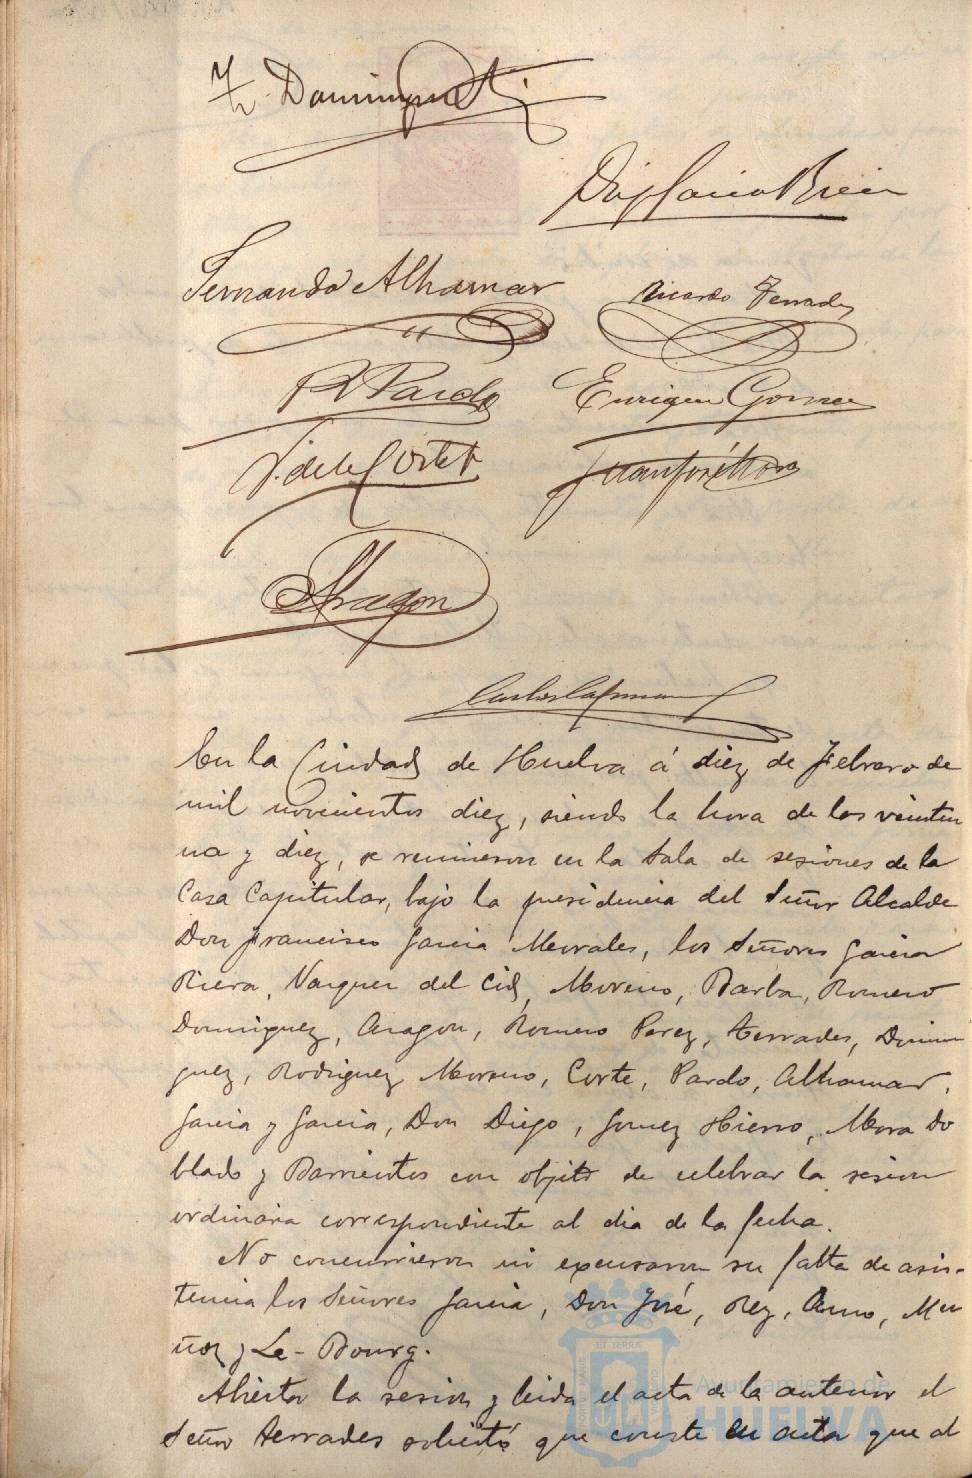 Fernando Alhamar
Ricardo Terrades
R Pardo
Enrique Gomez
J. de la Corte
Juan José Mora
Aragon
En la Ciudad de Huelva á diez de Febrero de
mil novecientos diez, siendo la hora de las veintiu
na y diez, se reunieron en la Sala de sesiones de la
Casa Capitular, bajo la presidencia del Señor Alcalde
Don Francisco Garcia Morales, los Señores Garcia
Riera, Vazquez del Cid, Moreno, Barba, Romero
Dominguez, Aragon, Romero Perez, Terrades, Domin
guez, Rodriguez Moreno, Corte, Pardo, Alhamar,
Garcia y Garcia, Don Diego, Gomez Hierro, Mora Do
blado y Barrientos con objeto de celebrar la sesion
ordinaria correspondiente al dia de la fecha.
No concurrieron ni excusaron su falta de asis-
tencia los Señores Garcia, Don José, Rey, Mu
ñoz y Le-Bourg.
Abierta la sesion y leida el acta de la anterior el
Señor Terrades solicitó que conste en acta que al
Ayuntamiento de
HUELVA